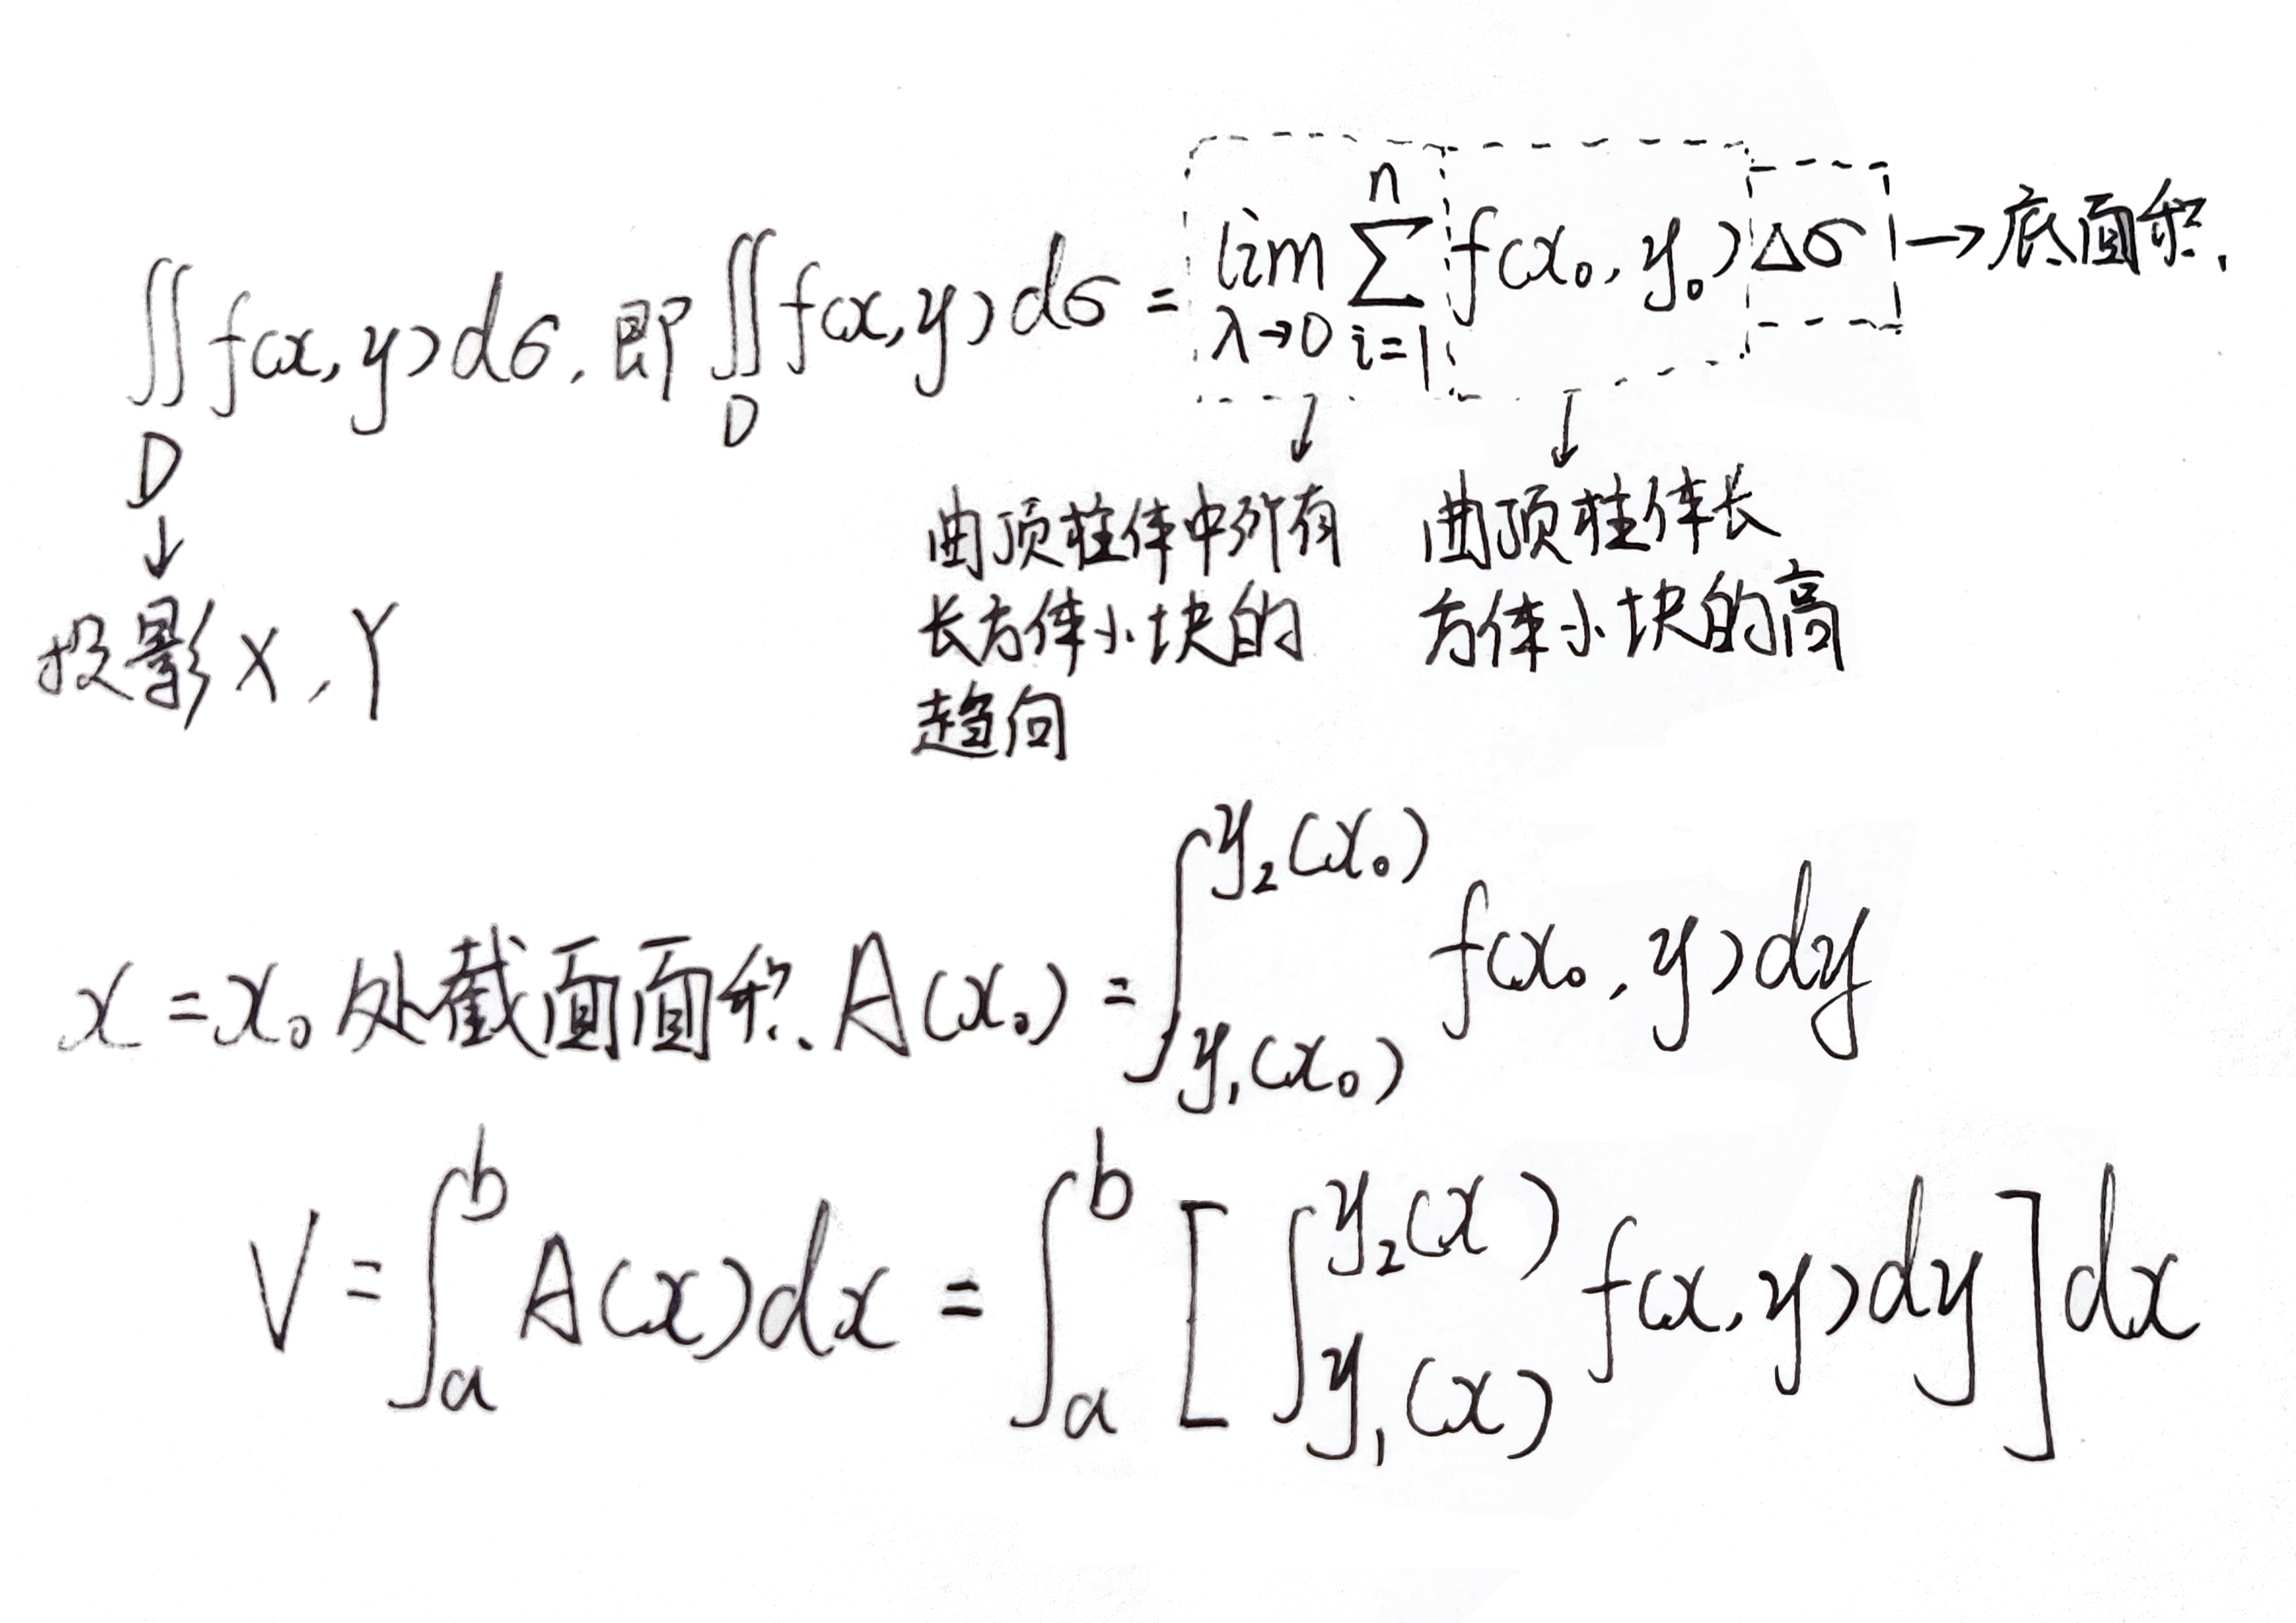 ∬_D f(x,y)dσ, 即 ∬_D f(x,y)dσ = lim_{λ→0} ∑_{i=1}^{n} f(x₀,y₀) Δσ → 底面积.
↓
投影X,Y
↓
曲顶柱体中所有
长方体小块的
趋向
↓
曲顶柱体长
方体小块的高
x = x₀ 处截面面积. A(x₀) = ∫_{y₁(x₀)}^{y₂(x₀)} f(x₀,y)dy
V = ∫_a^b A(x)dx = ∫_a^b [∫_{y₁(x)}^{y₂(x)} f(x,y)dy]dx